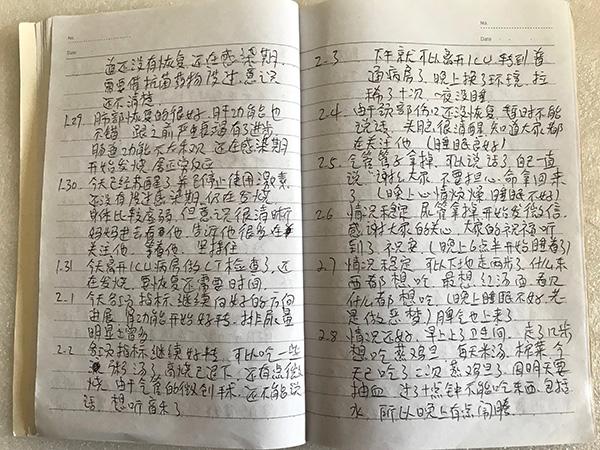 No.
Date
道还没有恢复 还在感染期.
需要借抗菌药物度过. 意识
还不清楚
1.29. 肺部恢复的很好. 肝功能也
不错 跟之前严重时有了进步.
肠道功能不太乐观 还在感染期
开始发烧 属正常反应
1.30. 今天已经苏醒了 并已停止使用激素.
还没有度过感染期. 仍在发烧
身体比较虚弱 但意识很清晰
妈妈进去看他. 告诉他 很多在
关注他. 等着他 坚持住
1.31 今天离开ICU病房做CT检查了. 还
在发烧. 要恢复还需要时间.
2-1 今天各项 指标 继续向好的方向
进展 肾功能开始好转. 排尿量
明显增多
2-2 各项指标继续好转. 可以吃一些
粥了 汤了. 高烧已退下 还有点低
烧 由于气管的微创手术. 还不能说
话. 想听音乐了
No.
Date
2-3 下午就可以离开ICU 转到普
通病房了. 晚上换了环境. 拉
稀了十次 一夜没睡
2.4. 由于颈部伤口还没恢复. 暂时不能
说话. 头脑很清醒. 知道大家都
在关注他 (睡眠良好)
2.5. 气管管子拿掉. 可以说话了. 自己一直
说"谢谢大家 不要担心. 命拿回来
了 (晚上心情烦燥 睡眠不好)
2.6 情况稳定. 尿管拿掉 开始发微信.
感谢大家的关心 大家的祝福听
到了. 祝安 (晚上6点半开始睡着了)
2.7 情况稳定. 可以下地走两步了. 什么东
西都 想吃 最想: 红汤面. 看见
什么都 想吃. (晚上睡眠不好. 老
是做恶梦) 脾气也上来了
2.8 情况还好. 早上上了卫生间. 走了几步
想吃 蒸鸡蛋 白米汤. 榨菜 今
天已吃了二次 蒸鸡蛋了. 因明天要
抽血 过了十点钟不能吃东西. 包括
水. 所以晚上有点闹腾